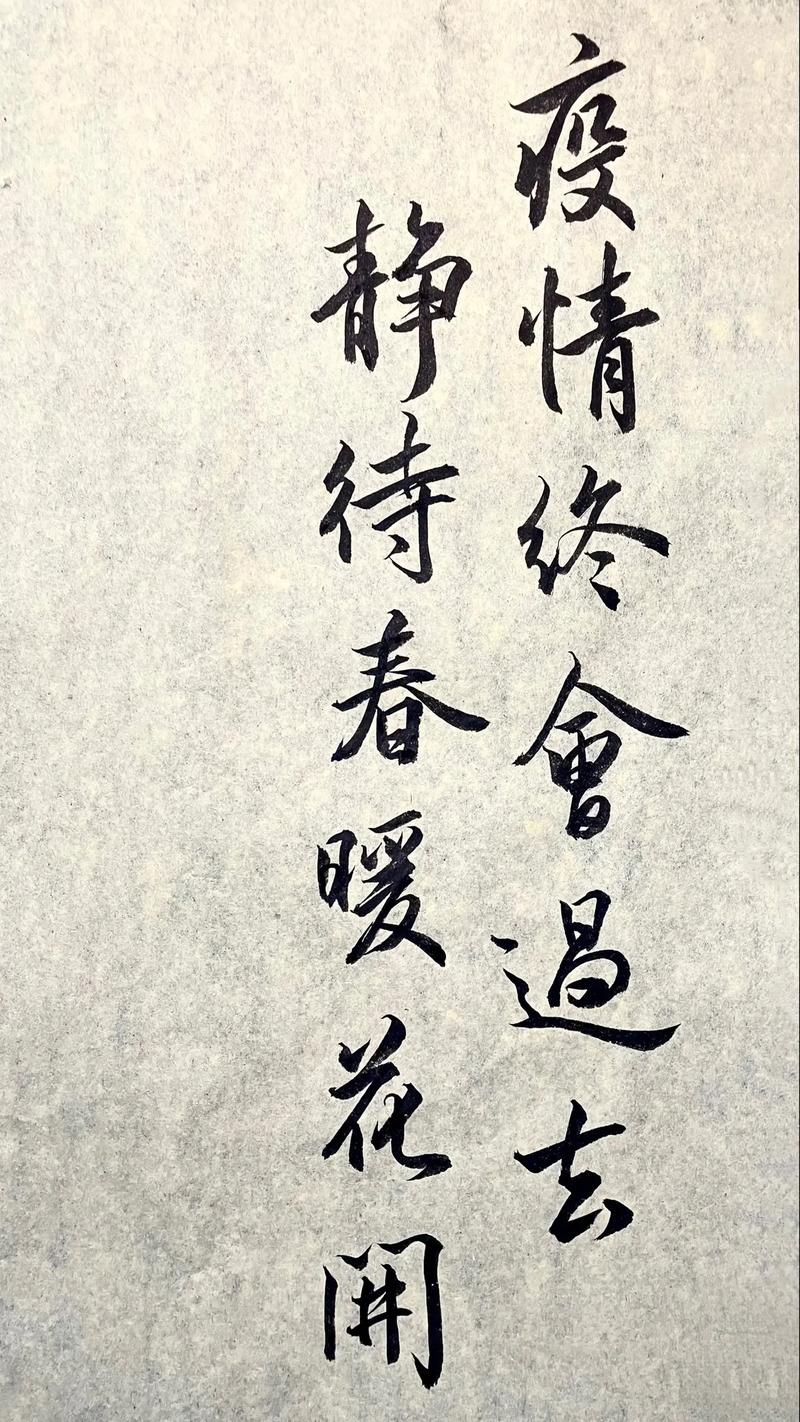 疫情終會過去
静待春暖花開